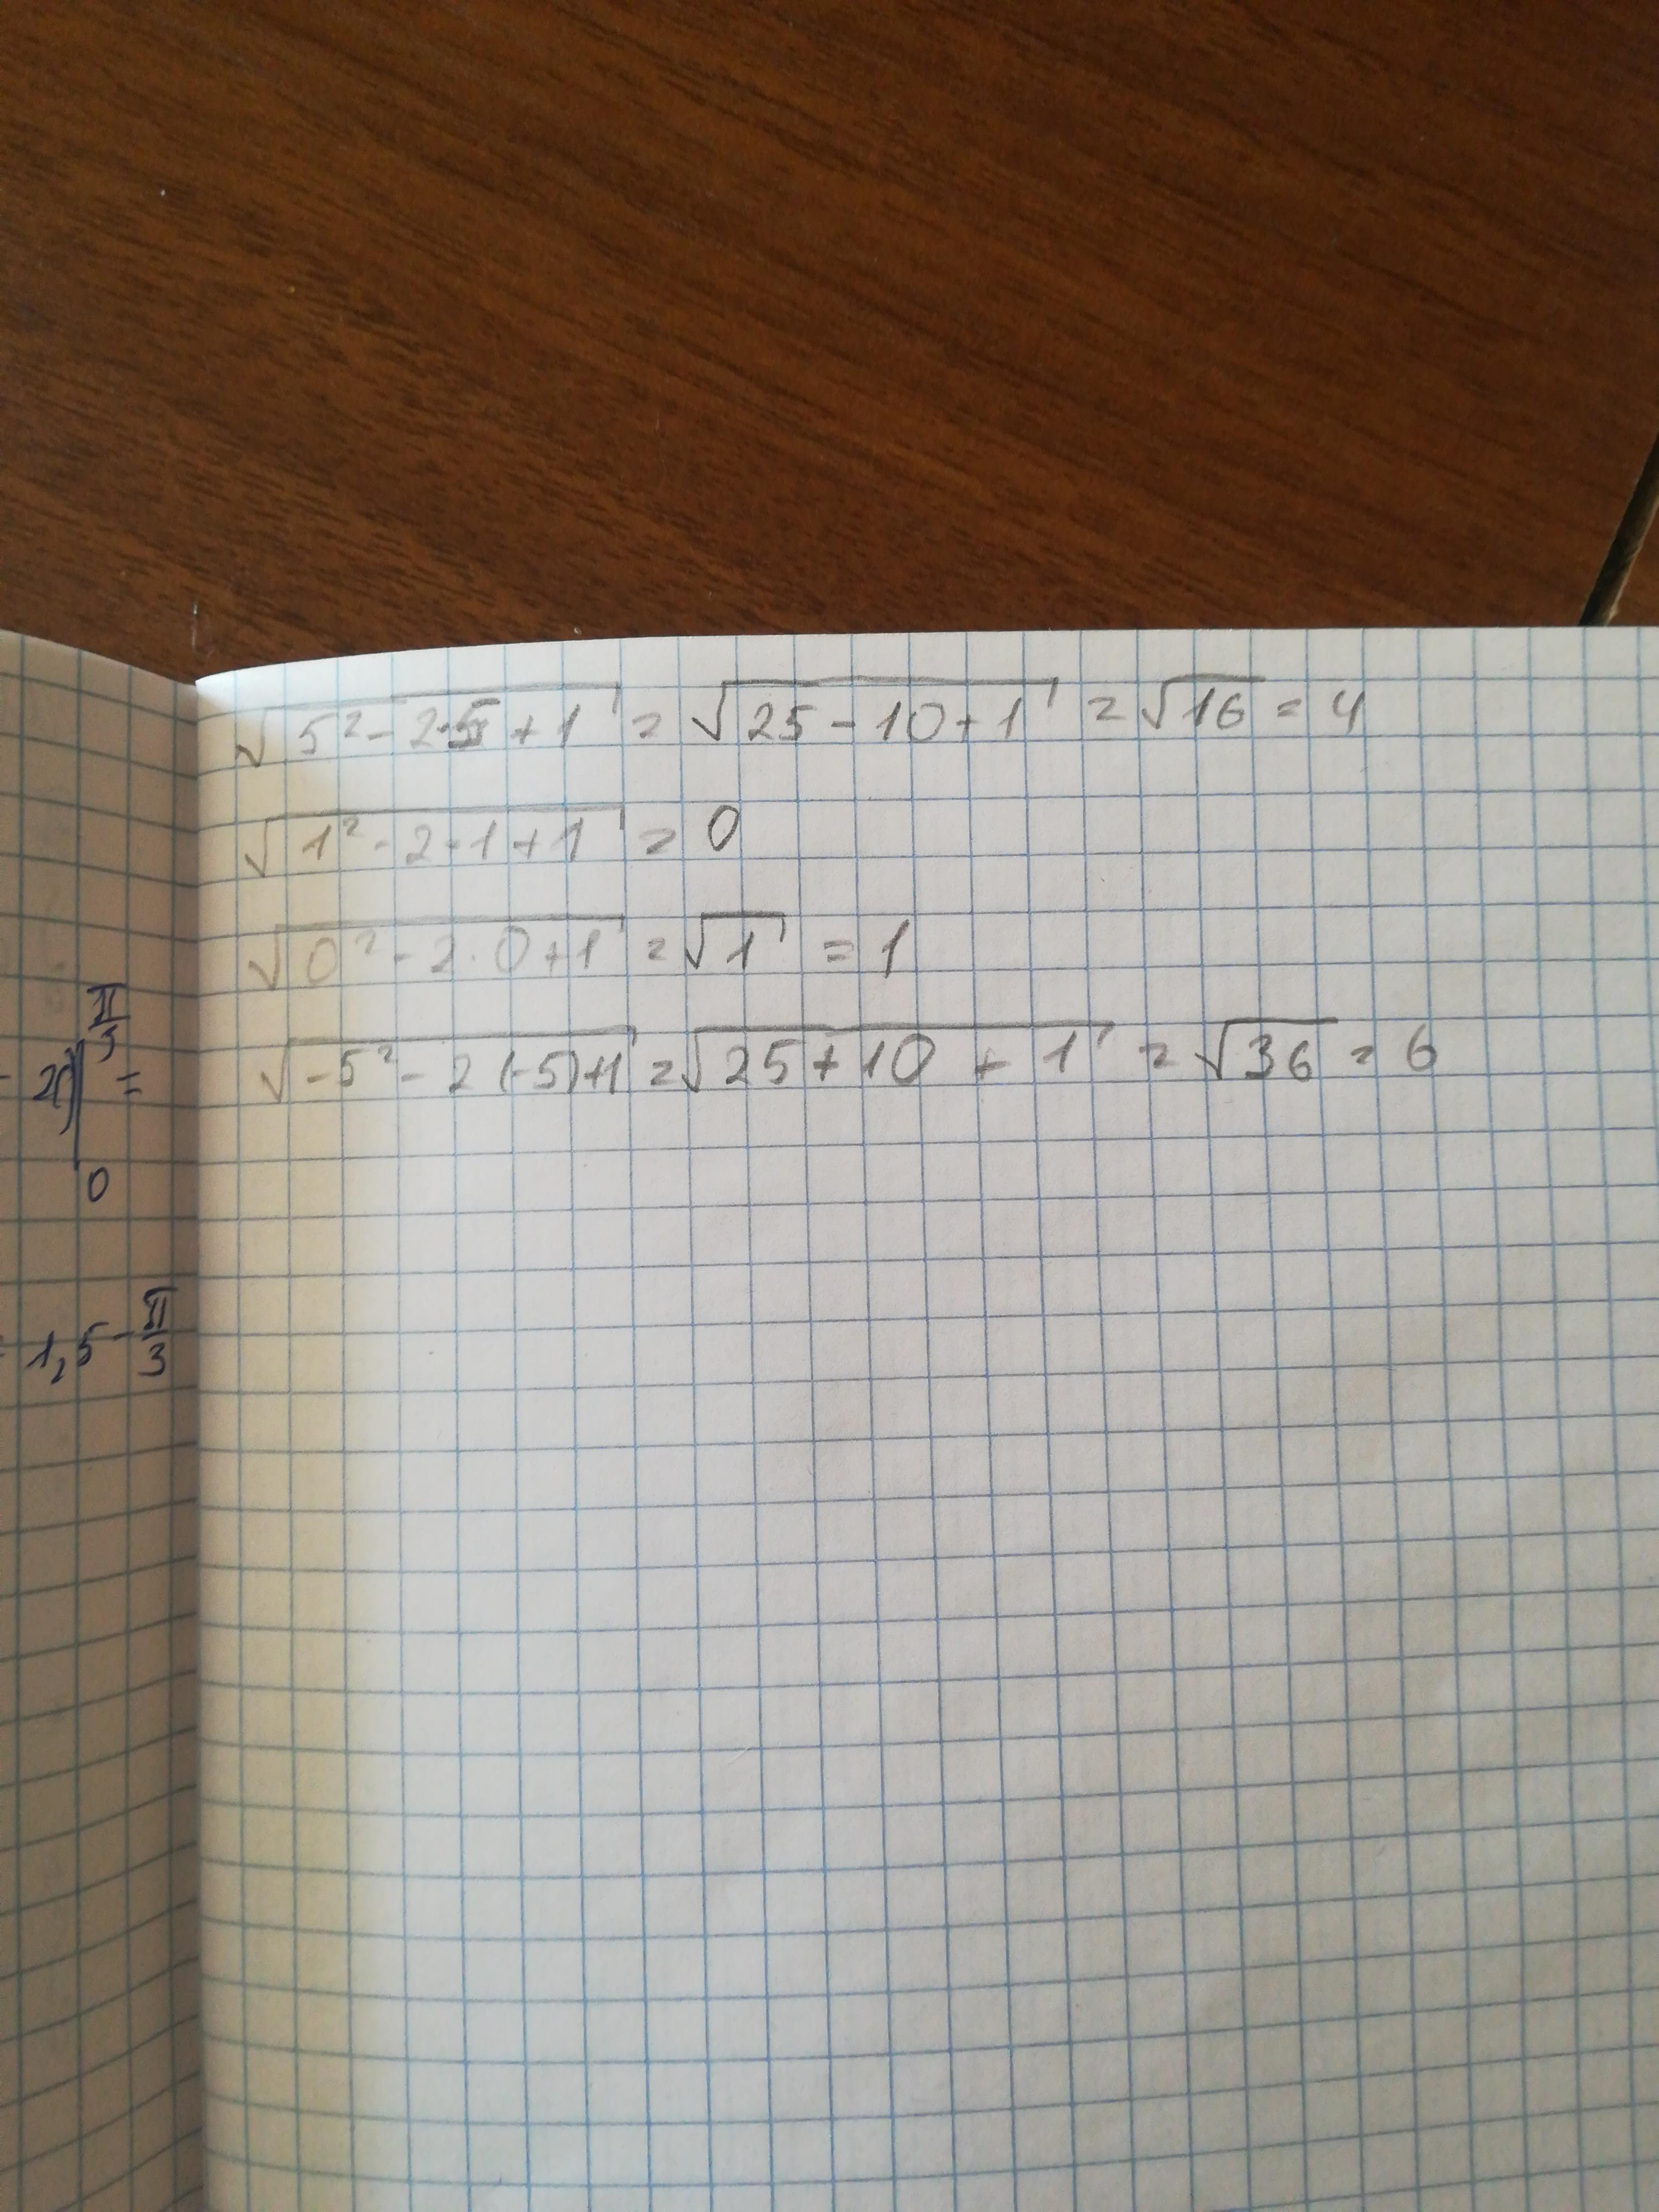 √(5² - 2·5 + 1) = √(25 - 10 + 1) = √16 = 4
√(1² - 2·1 + 1) = 0
√(0² - 2·0 + 1) = √1 = 1
√(-5² - 2(-5)+1) = √(25 + 10 + 1) = √36 = 6
π/3
=
0
1,5 - π/3